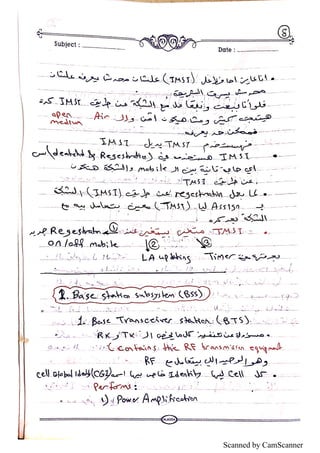 8
Subject :
Date :
انا عايز احافظ على (IMSI) علشان محدش يعرف علشان
محدش يسرق
فلو أنا وبتعامل مع الشبكة عن طريق IMSI كده
هيتبعت كتير ومش هيكون أمن وال Air open
medium
فممكن حد يعرفه
فبستخدم TMSI بدل IMSI
IMSI مستخدم في (Identity & Registration) بس
أي حاجة تانية بين ال mobile والشبكة هتكون
عن طريق TMSI
لما بعمل registration عن طريق (IMSI) الشبكة
بـ Assign ليا (TMSI) معين بتعامل بيه مع
الشبكة بعد كده
TMSI متغير بيتغير عند ① Registration جديد
on/off mobile ② ③
LA updating Timer
1. Base station subsystem (BSS)
1. Base Transceiver station (BTS)
مسئولة عن TX و RX
(contains the RF transmission equipment
وهو الوحيد اللي بيتعامل مع RF
كل Cell ليها Identity خاص بيها اسمه Cell Global Identity (CGI)
Performs:
1) Power Amplification
Scanned by CamScanner